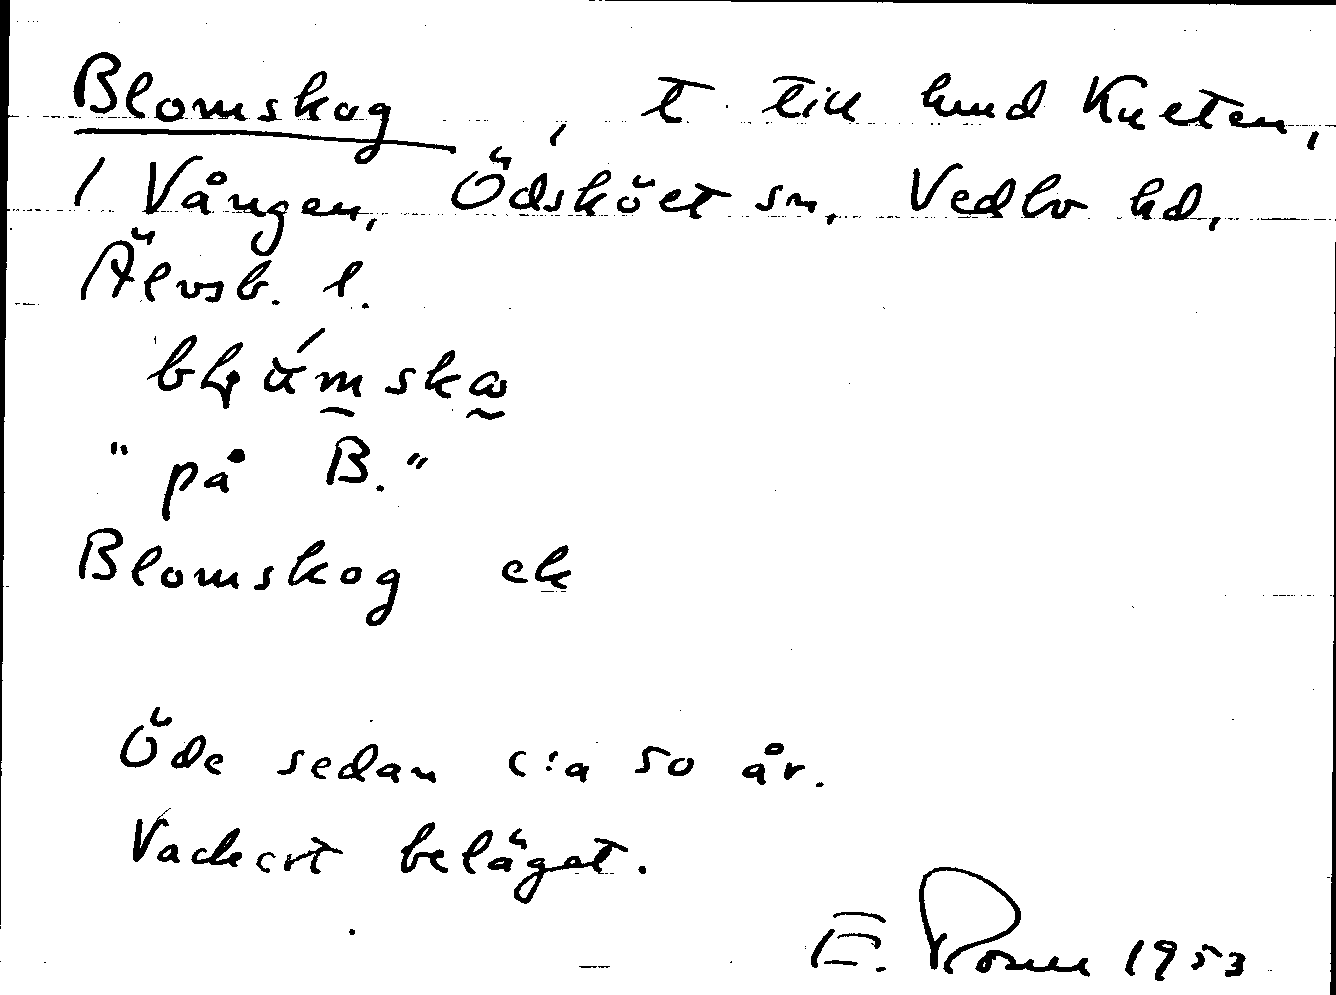 Blomskog, t till hmd Kneten,
1 Vången, Ödsköet sn, Vedbo hd,
Älvsb. l.
"på B."
Blomskog ek
Öde sedan c:a 50 år.
Vackert beläget.
E. 1953